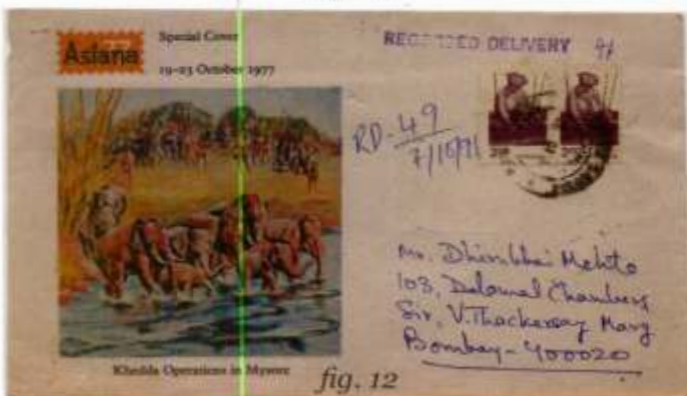 Asiana
Special Cover
19-23 October 1977
RECORDED DELIVERY
RD-49
7/10/91
Mr. Dhirubhai Mehta
103, Dalamal Chambers
Sir, V. Thackersay Marg
Bombay-400020
Khedda Operations in Mysore
fig. 12